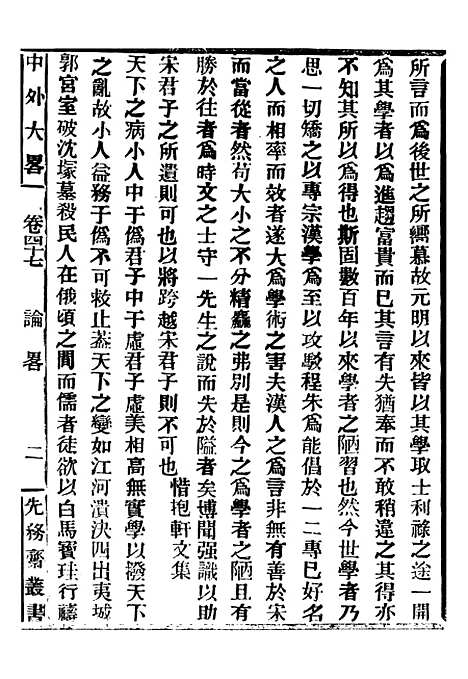 所言而爲後世之所嚮慕故元明以來皆以其學取士利祿之途一開
爲其學者以爲進趨富貴而已其言有失猶奉而不敢稍違之其得亦
不知其所以爲得也斯固數百年以來學者之陋習也然今世學者乃
思一切矯之以專宗漢學爲至以攻駁程朱爲能倡於一二專已好名
之人而相率而效者遂大爲學術之害夫漢人之爲言非無有善於宋
而當從者然苟大小之不分精麤之弗別是則今之爲學者之陋且有
勝於往者爲時文之士守一先生之說而失於隘者矣博聞强識以助
宋君子之所遺則可也以將跨越宋君子則不可也
惜抱軒文集
天下之病小人中于僞君子中于虛君子虛美相高無實學以撥天下
之亂故小人益務于僞不可救止葢天下之變如江河潰決四出夷城
郭宮室破沈塚墓殺民人在俄頃之閒而儒者徒欲以白馬寶珪行禱
中外大畧
卷四十七
論畧
二
先務齋叢書